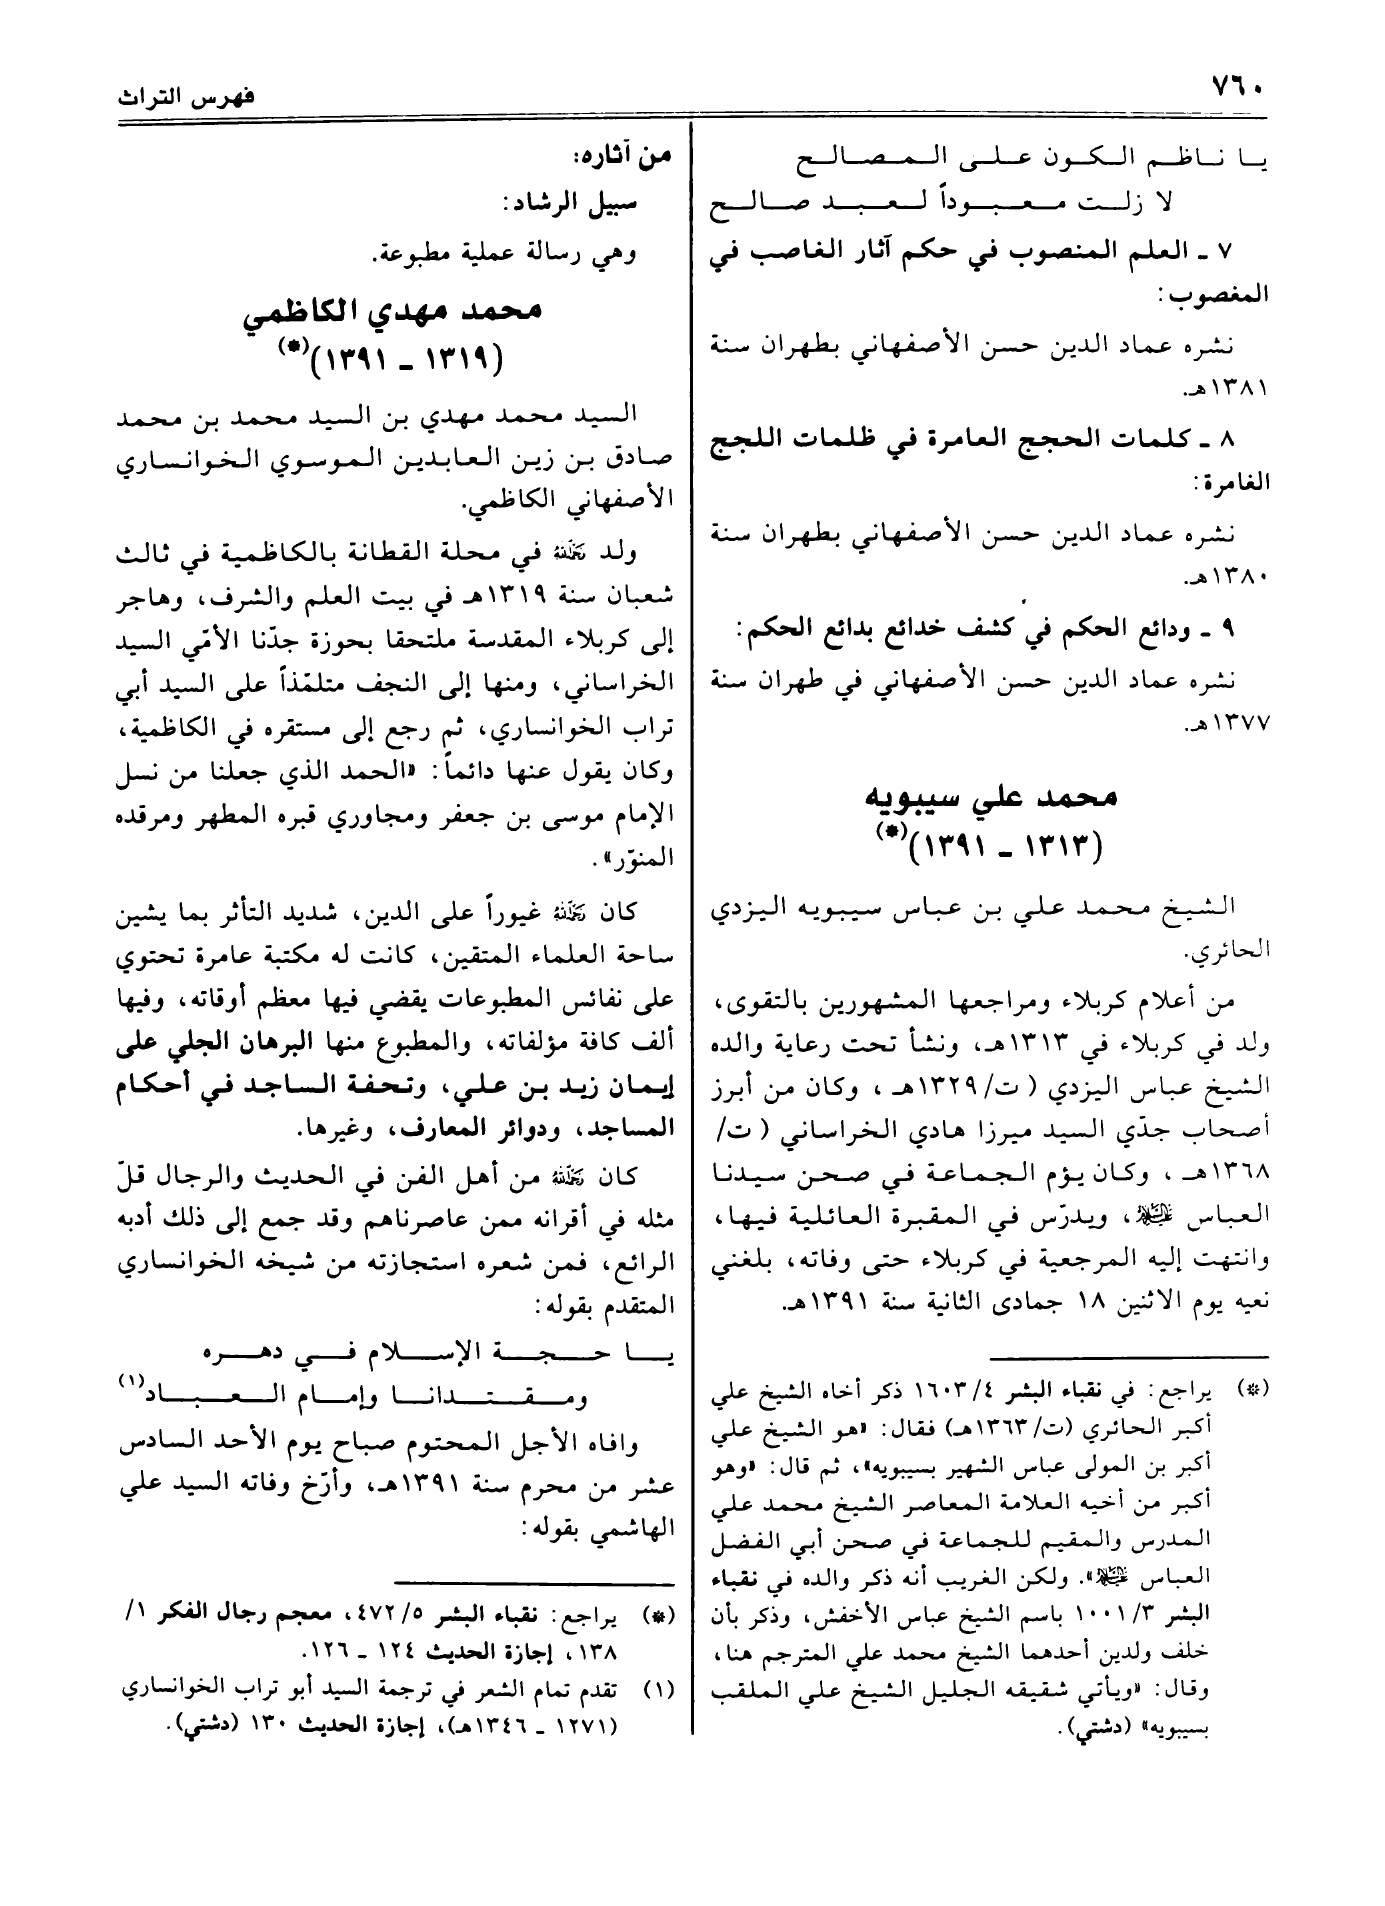 ٧٦٠
فهرس التراث
يا ناظم الكون على المصالح
لا زلت معبوداً لعبد صالح
٧ ـ العلم المنصوب في حكم آثار الغاصب في
المغصوب:
نشره عماد الدين حسن الأصفهاني بطهران سنة
١٣٨١هـ.
٨ ـ كلمات الحجج العامرة في ظلمات اللجج
الغامرة:
نشره عماد الدين حسن الأصفهاني بطهران سنة
١٣٨٠هـ.
٩ ـ ودائع الحكم في كشف خدائع بدائع الحكم:
نشره عماد الدين حسن الأصفهاني في طهران سنة
١٣٧٧هـ.
محمد علي سيبويه
(١٣١٣ ـ ١٣٩١)(*)
الشيخ محمد علي بن عباس سيبويه اليزدي
الحائري.
من أعلام كربلاء ومراجعها المشهورين بالتقوى،
ولد في كربلاء في ١٣١٣هـ، ونشأ تحت رعاية والده
الشيخ عباس اليزدي ( ت/ ١٣٢٩هـ ، وكان من أبرز
أصحاب جدّي السيد ميرزا هادي الخراساني ( ت/
١٣٦٨هـ ، وكان يؤم الجماعة في صحن سيدنا
العباس عليه السلام، ويدرّس في المقبرة العائلية فيها،
وانتهت إليه المرجعية في كربلاء حتى وفاته، بلغني
نعيه يوم الاثنين ١٨ جمادى الثانية سنة ١٣٩١هـ.
(*) يراجع: في نقباء البشر ٤/ ١٦٠٣ ذكر أخاه الشيخ علي
أكبر الحائري (ت/ ١٣٦٣هـ) فقال: «هو الشيخ علي
أكبر بن المولى عباس الشهير بسيبويه»، ثم قال: «وهو
أكبر من أخيه العلامة المعاصر الشيخ محمد علي
المدرس والمقيم للجماعة في صحن أبي الفضل
العباس عليه السلام». ولكن الغريب أنه ذكر والده في نقباء
البشر ٣/ ١٠٠١ باسم الشيخ عباس الأخفش، وذكر بأن
خلف ولدين أحدهما الشيخ محمد علي المترجم هنا،
وقال: «ويأتي شقيقه الجليل الشيخ علي الملقب
بسيبويه» (دشتي).
من آثاره:
سبيل الرشاد:
وهي رسالة عملية مطبوعة.
محمد مهدي الكاظمي
(١٣١٩ ـ ١٣٩١)(*)
السيد محمد مهدي بن السيد محمد بن محمد
صادق بن زين العابدين الموسوي الخوانساري
الأصفهاني الكاظمي.
ولد رحمه الله في محلة القطانة بالكاظمية في ثالث
شعبان سنة ١٣١٩هـ في بيت العلم والشرف، وهاجر
إلى كربلاء المقدسة ملتحقا بحوزة جدّنا الأمّي السيد
الخراساني، ومنها إلى النجف متلمّذاً على السيد أبي
تراب الخوانساري، ثم رجع إلى مستقره في الكاظمية،
وكان يقول عنها دائماً: «الحمد الذي جعلنا من نسل
الإمام موسى بن جعفر ومجاوري قبره المطهر ومرقده
المنوّر».
كان رحمه الله غيوراً على الدين، شديد التأثر بما يشين
ساحة العلماء المتقين، كانت له مكتبة عامرة تحتوي
على نفائس المطبوعات يقضي فيها معظم أوقاته، وفيها
ألف كافة مؤلفاته، والمطبوع منها البرهان الجلي على
إيمان زيد بن علي، وتحفة الساجد في أحكام
المساجد، ودوائر المعارف، وغيرها.
كان رحمه الله من أهل الفن في الحديث والرجال قلّ
مثله في أقرانه ممن عاصرناهم وقد جمع إلى ذلك أدبه
الرائع، فمن شعره استجازته من شيخه الخوانساري
المتقدم بقوله:
يا حجة الإسلام في دهره
ومقتدانا وإمام العباد(١)
وافاه الأجل المحتوم صباح يوم الأحد السادس
عشر من محرم سنة ١٣٩١هـ، وأرّخ وفاته السيد علي
الهاشمي بقوله:
(*) يراجع: نقباء البشر ٥/ ٤٧٢، معجم رجال الفكر ١/
١٣٨، إجازة الحديث ١٢٤ ـ ١٢٦.
(١) تقدم تمام الشعر في ترجمة السيد أبو تراب الخوانساري
(١٢٧١ ـ ١٣٤٦هـ)، إجازة الحديث ١٣٠ (دشتي).